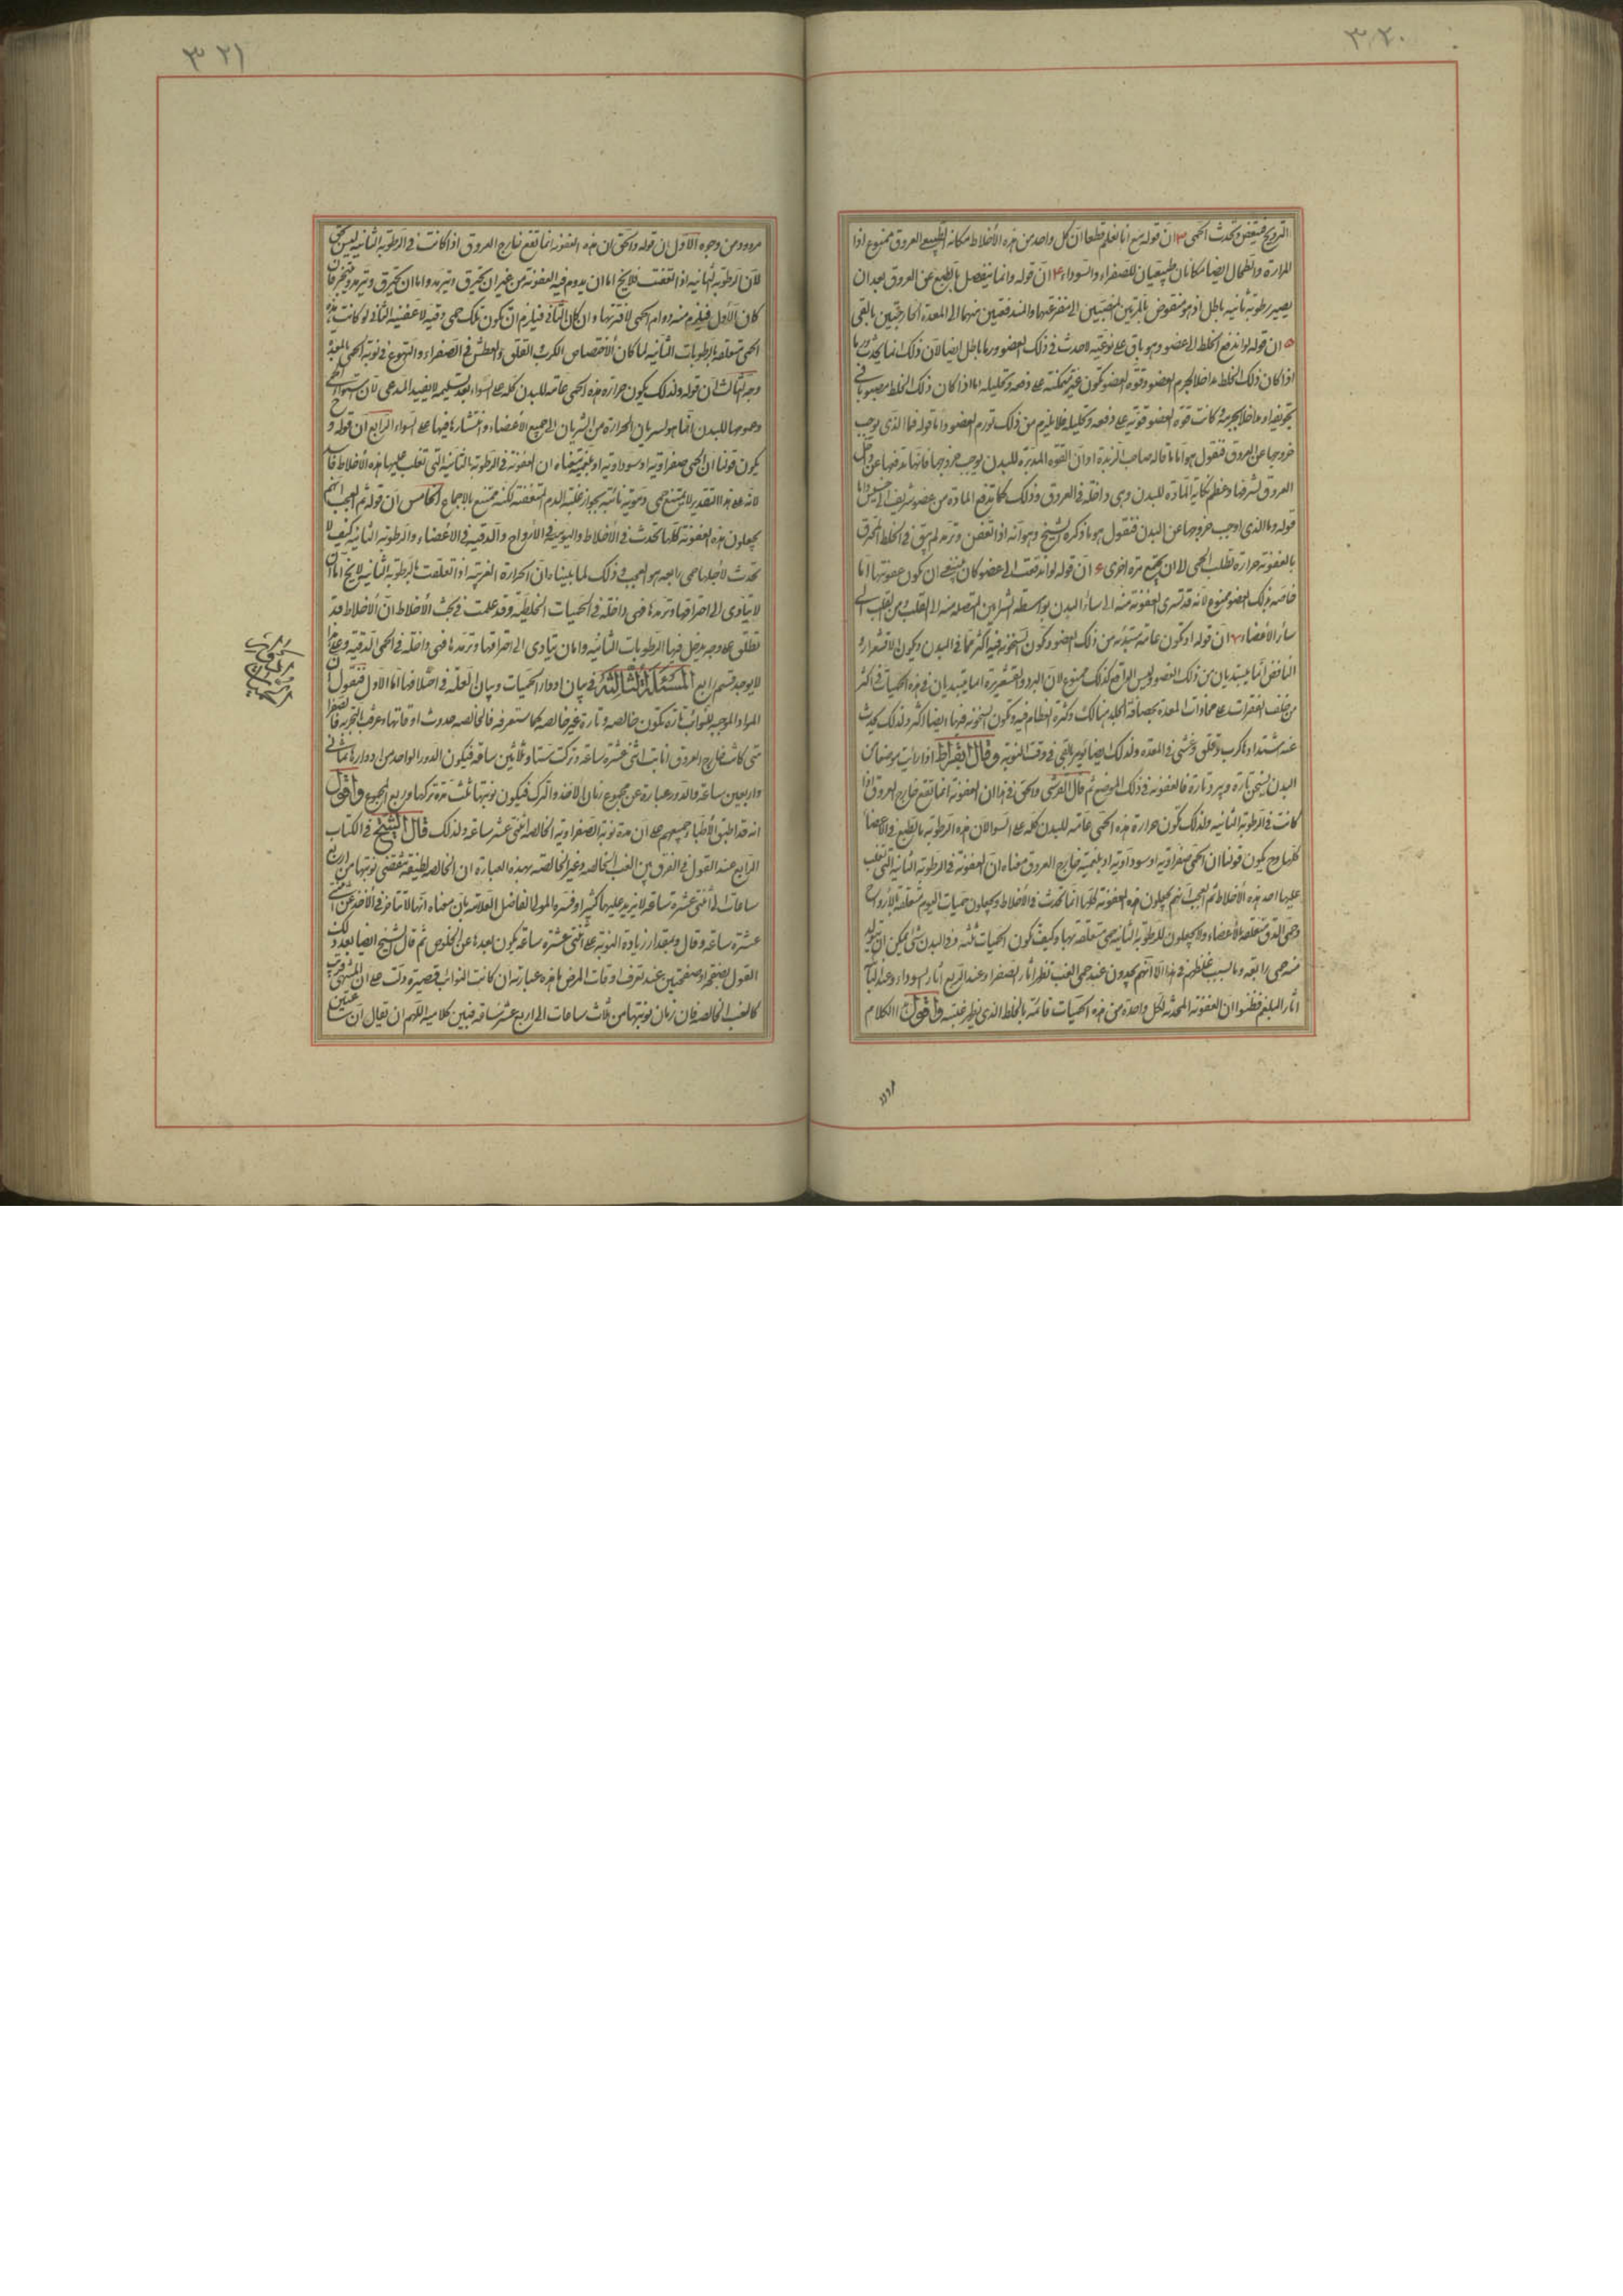 ٣٢٠
الترويح فيتعفن وتحدث الحمى ٣ ان قوله مع انا نعلم قطعا ان كل واحد من هذه الأخلاط مكانه الطبيعى العروق ممنوع اذا
المرارة والطحال ايضا مكانان طبيعيان للصفراء والسوداء ٤ ان قوله وانما ينفصل بالطبع عن العروق بعد ان
يصير رطوبة ثانية باطل اذ هو منقوض بالمرتين المنصبتين الى مفرغتهما والمندفعتين منهما الى المعدة الخارجتين بالقى
٥ ان قوله لو اندفع الخلط الى عضو وهو باق على نوعيته لاحدث فى ذلك العضو ورما باطل ايضا لان ذلك انما يحدث ورما
اذا كان ذلك الخلط مداخلا لجرم العضو وقوة العضو تكون غير متمكنة على دفعه وتحليله اما اذا كان ذلك الخلط مصبوبا فى
تجويفه او مداخلا لجرمه وكانت قوة العضو قوية على دفعه وتحليله فلا يلزم من ذلك تورم العضو واما قوله فما الذى يوجب
خروجها عن العروق فنقول هو اما ما قاله صاحب الزبدة او ان القوة المدبرة للبدن يوجب خروجها فانها تدفعها عن داخل
العروق لشرفها وعظم نكاية المادة للبدن وهى داخلة فى العروق وذلك كما تدفع المادة من عضو شريف الى خسيس واما
قوله وما الذى اوجب خروجها عن البدن فنقول هو ما ذكره الشيخ وهو انه اذا تعفن وترمد لم يبق فى الخلط المحترق
بالعفونة حرارة تطلب الحمى الا ان يجتمع مرة اخرى ٦ ان قوله لو اندفعت الى عضو كان ينبغى ان يكون عفونتها اما
خاصة بذلك العضو ممنوع لانه قد تسرى العفونة منه الى سائر البدن بواسطة الشرايين المتصلة منه الى القلب ومن القلب الى
سائر الأعضاء ٧ ان قوله او تكون عامة مبتدئة من ذلك العضو وتكون السخونة فيه اكثر مما فى البدن ويكون الاقشعرار و
النافض انما يبتديان من ذلك العضو وليس الواقع كذلك ممنوع لان البرد والقشعريرة انما يبتديان فى هذه الحميات فى اكثر
من خلف الفقرات على محاذات المعدة لحصافة الجلد هنالك وكثرة العظام فيه وتكون السخونة فيها ايضا اكثر ولذلك يحدث
عند اشتدادها كرب وقلق وغشى فى المعدة ولذلك ايضا يؤمر بالقى فى وقت النوبة وقال ابقراط اذا رايت موضعا من
البدن يسخن تارة ويبرد تارة فالعفونة فى ذلك الموضع ثم قال القرشى والحق فى هذا ان العفونة انما تقع خارج العروق اذا
كانت فى الرطوبة الثانية ولذلك تكون حرارة هذه الحمى عامة للبدن كله على السوا لان هذه الرطوبة بالطبع فى الأعضا
كلها وح يكون قولنا ان الحمى صفراوية او سوداوية او بلغمية خارج العروق معناه ان العفونة فى الرطوبة الثانية التى تغلب
عليها احد هذه الأخلاط ثم العجب انهم يجعلون هذه العفونة كلها انما تحدث فى الأخلاط ويجعلون حميات اليوم متعلقة بالأرواح
وحمى الدق متعلقة بالأعضاء ولا يجعلون للرطوبة الثانية حمى متعلقة بها وكيف تكون الحميات ثلثة وفى البدن شى يمكن ان يتولد
منه حمى رابعة وما السبب غلطهم فى هذا الا انهم يجدون عند حمى الغب تظهر اثار الصفراء وعند الربع اثار السوداء وعند النائبة
اثار البلغم فظنوا ان العفونة المحدثة لكل واحدة من هذه الحميات قائمة بالخلط الذى يظهر غلبته واقول هذا الكلام
مردود
٣٢١
مردود من وجوه الأول ان قوله والحق ان هذه العفونة انما تقع خارج العروق اذا كانت فى الرطوبة الثانية ليس بحق
لان الرطوبة الثانية اذا تعفنت فلا يخ اما ان يدوم فيه العفونة من غير ان يحترق ويترمد واما ان يحترق ويترمد ويتحجر فان
كان الأول فيلزم منه دوام الحمى لا فترتها وان كان الثانى فيلزم ان تكون تلك حمى دقية لا عفنية الثانى لو كانت هذه
الحمى متعلقة بالرطوبات الثانية لما كان لأختصاص الكرب والقلق والعطش فى الصفراء والتهوع فى نوبة الحمى بالمعدة
وجه الثالث ان قوله ولذلك يكون حرارة هذه الحمى عامة للبدن كله على السواء بعد تسليمه لا يفيد المدعى لان استواء الحمى
وعمومها للبدن انما هو لسريان الحرارة من الشريان الى جميع الأعضاء وانتشارها فيها على السواء الرابع ان قوله و ح
يكون قولنا ان الحمى صفراوية او سوداوية او بلغمية معناه ان العفونة فى الرطوبة الثانية التى تغلب عليها هذه الأخلاط فاسد
لانه على هذا التقدير لا يمتنع حمى دموية نائبة بجواز غلبة الدم المتعفنة لكنه ممتنع بالاجماع الخامس ان قوله ثم العجب انهم
يجعلون هذه العفونة كلها تحدث فى الأخلاط واليومية فى الأرواح والدقية فى الأعضاء والرطوبة الثانية كيف لا
تحدث لاجلها حمى رابعة هو العجب فى ذلك لما بيناه ان الحرارة الغريبة اذا تعلقت بالرطوبة الثانية لا يخ اما ان
لا يتادى الى احتراقها وترمدها فهى داخلة فى الحميات الخلطية وقد علمت فى بحث الأخلاط ان الأخلاط قد
تطلق على وجه يدخل فيها الرطوبات الثانية واما ان يتادى الى احتراقها وترمدها فهى داخلة فى الحمى الدقية وعلى هذا
لا يوجد قسم رابع المسئلة الثالثة فى بيان ادوار الحميات وبيان العلة فى اختلافها اما الاول فنقول ان
المواد الموجبة للنوائب تارة تكون خالصة وتارة غير خالصة كما ستعرفه فالخالصة حدوث اوقاتها وعرف بالتجربة فالصفرا
متى كانت خارج العروق انابت اثنى عشرة ساعة وتركت ستا وثلاثين ساعة فيكون الدور الواحد من ادوارها ثمانى
واربعين ساعة والدور عبارة عن مجموع زمان الاخذ والترك فيكون نوبتها ثلث مدة تركها وربع المجموع واقول
انه قد اطبق الأطباء جميعهم على ان مدة نوبة الصفراوية الخالصة اثنى عشر ساعة ولذلك قال الشيخ فى الكتاب
الرابع عند القول فى الفرق بين الغب الخالصة وغير الخالصة بهذه العبارة ان الخالصة لطيفة تنقضى نوبتها من اربع
ساعات الى اثنتى عشرة ساعة لا يزيد عليها كثيرا وفسره المولى الفاضل العلامة بان معناه انها لا تتاخر فى الأخذ عن اثنتى
عشرة ساعة وقال وبمقدار زيادة النوبة على اثنتى عشرة ساعة يكون بعدها عن الخلوص ثم قال الشيخ ايضا بعد ذلك
القول بصفحة او صفحتين عند تعرف اوقات المرض ما هذه عبارته ان كانت النوائب قصيرة دلت على ان المنتهى قريب
كالغب الخالصة فان زمان نوبتها من ثلاث ساعات الى اربع عشر ساعة فبين كلاميه اللهم ان يقال ان